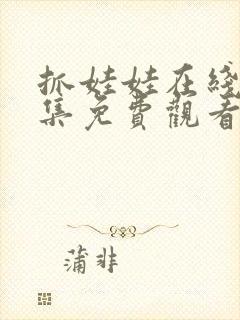 抓娃娃在綫
集免費觀看
蒲非